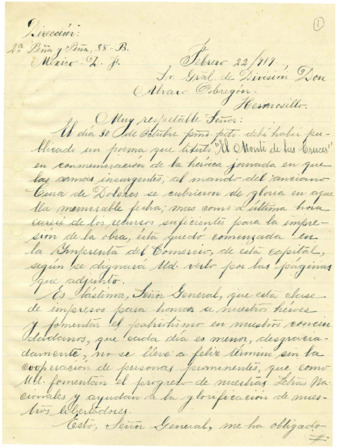 1
Dirección:
2ª Peña y Peña, 88-B.
México - D. F.
Febrero 22/919
Sr. Gral. de División Don
Alvaro Obregón.
Hermosillo.
Muy respetable Señor:
Al día 30 de Octubre ppdo. debí haber pu-
blicado un poema que titulo "El Monte de las Cruces"
en conmemoración de la heroica jornada en que
las armas insurgentes, al mando del anciano
Cura de Dolores se cubrieron de gloria en aque
lla memorable fecha; mas como a última hora
carecí de los recursos suficientes para la impre-
sión de la obra, ésta quedó comenzada en
la Imprenta del Comercio, de ésta capital,
según se dignará Ud. verlo por las páginas
que adjunto.
Es lástima, Señor General, que esta clase
de impresos para honrar a nuestros héroes
y fomentar el patriotismo en nuestros conciu-
dadanos, que cada día es menor, desgracia-
damente, no se lleve a feliz término sin la
cooperación de personas prominentes, que como
Ud. fomentan el progreso de nuestras Letras Na-
cionales y ayudan a la glorificación de nues-
tros libertadores.
Esto, Señor General, me ha obligado